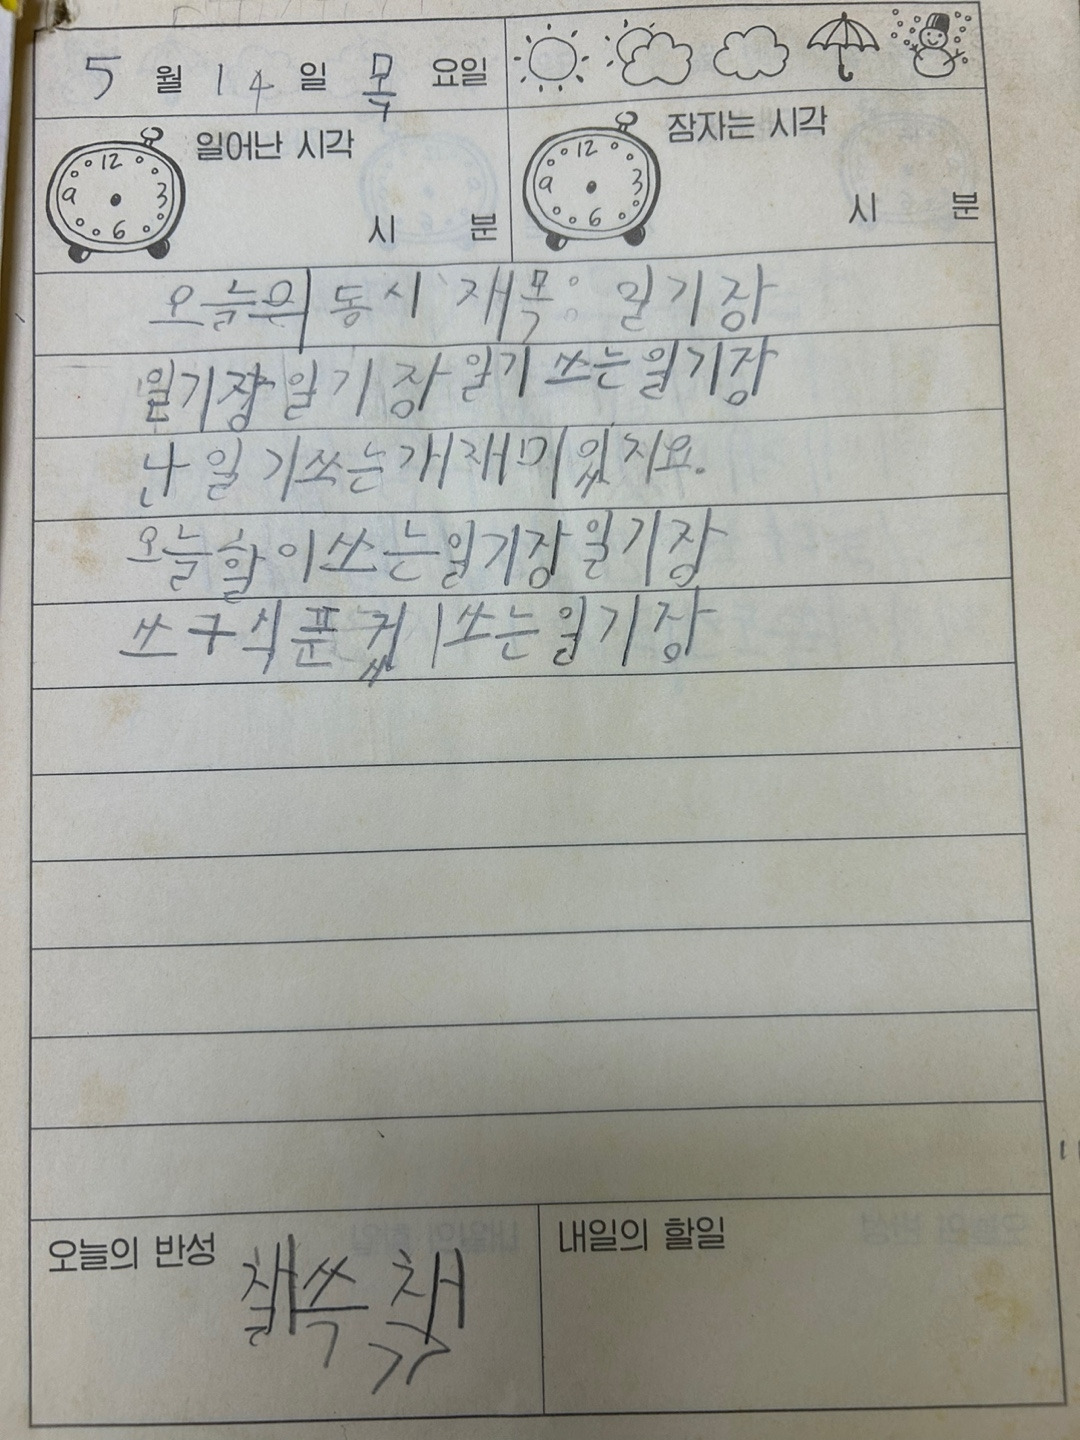 5 월 14 일 목 요일
일어난 시각
12 3 6 9
시 분
잠자는 시각
12 3 6 9
시 분
오늘의 동시 재목: 일기장
일기장 일기장 일기 쓰는 일기장
난 일기쓰는개재미있지요.
오늘할이쓰는일기장일기장
쓰구식푼 이쓰는일기장
오늘의 반성
내일의 할일